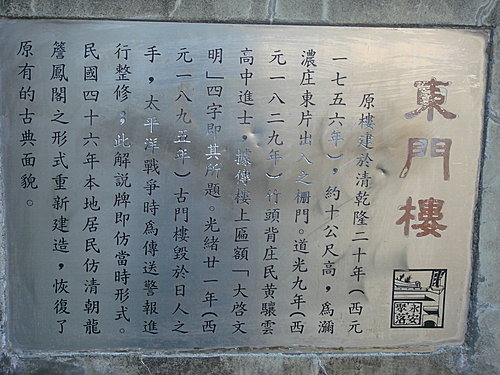 東門樓
原樓建於清乾隆二十年（西元
一七五六年），約十公尺高，為瀰
濃庄東片出入之柵門。道光九年（西
元一八二九年）行頭背庄民黃驤雲
高中進士，據傳樓上匾額「大啓文
明」四字即其所題。光緒廿一年（西
元一八九五年）古門樓毀於日人之
手，太平洋戰爭時為傳送警報進
行整修，此解說牌即仿當時形式。
民國四十六年本地居民仿清朝龍
簷鳳閣之形式重新建造，恢復了
原有的古典面貌。
永安
聚落